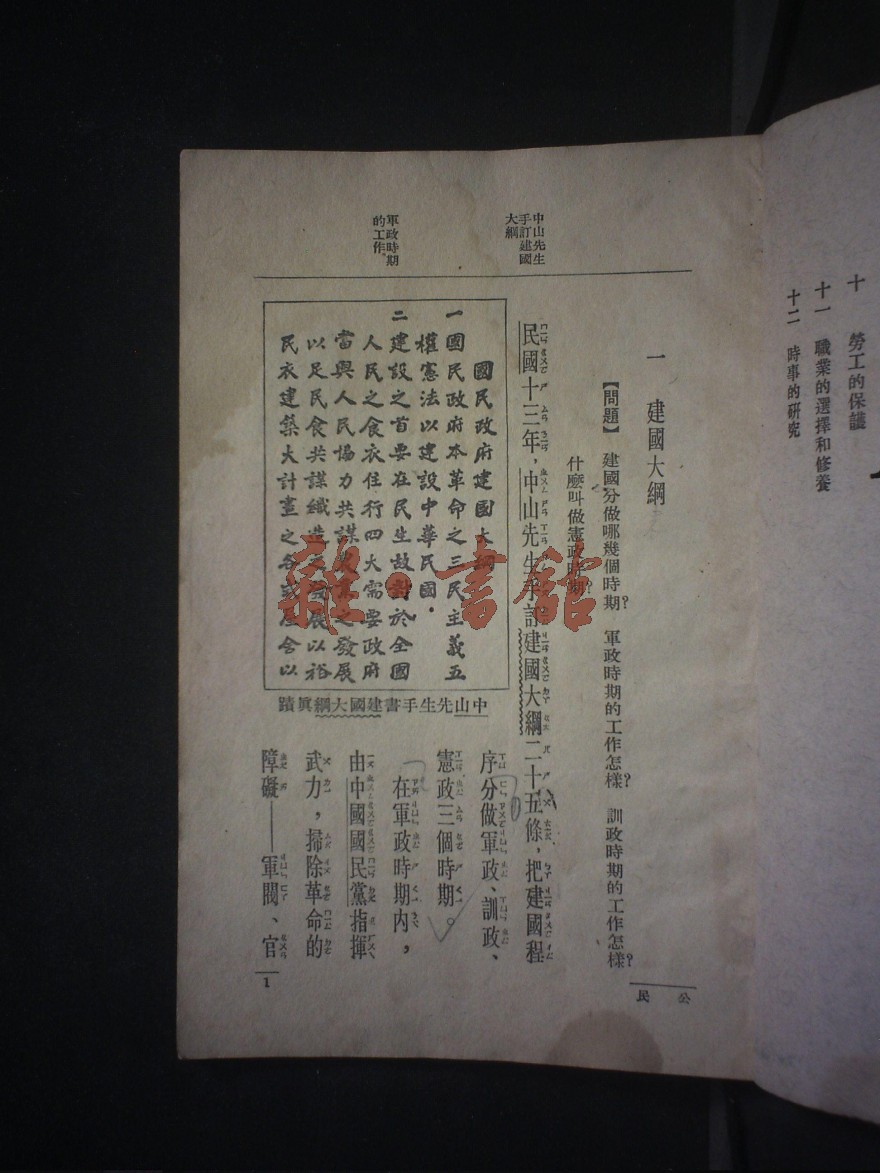 十　勞工的保護
十一　職業的選擇和修養
十二　時事的研究
公民
一　建國大綱
【問題】　建國分做哪幾個時期？　軍政時期的工作怎樣？　訓政時期的工作怎樣？
什麼叫做憲政時期？
中山先生
手訂建國
大綱
民國十三年，中山先生手訂建國大綱二十五條，把建國程
序分做軍政、訓政、
憲政三個時期。
在軍政時期內，
軍政時期
的工作。
由中國國民黨指揮
武力，掃除革命的
障礙——軍閥、官
國民政府建國大綱
一　國民政府本革命之三民主義五
權憲法以建設中華民國．
二　建設之首要在民生故對於全國
人民之食衣住行四大需要政府
當與人民協力共謀之發展
以足民食共謀織造之發展以裕
民衣建築大計畫之各式屋舍以
中山先生手書建國大綱眞蹟
1
雜·書館